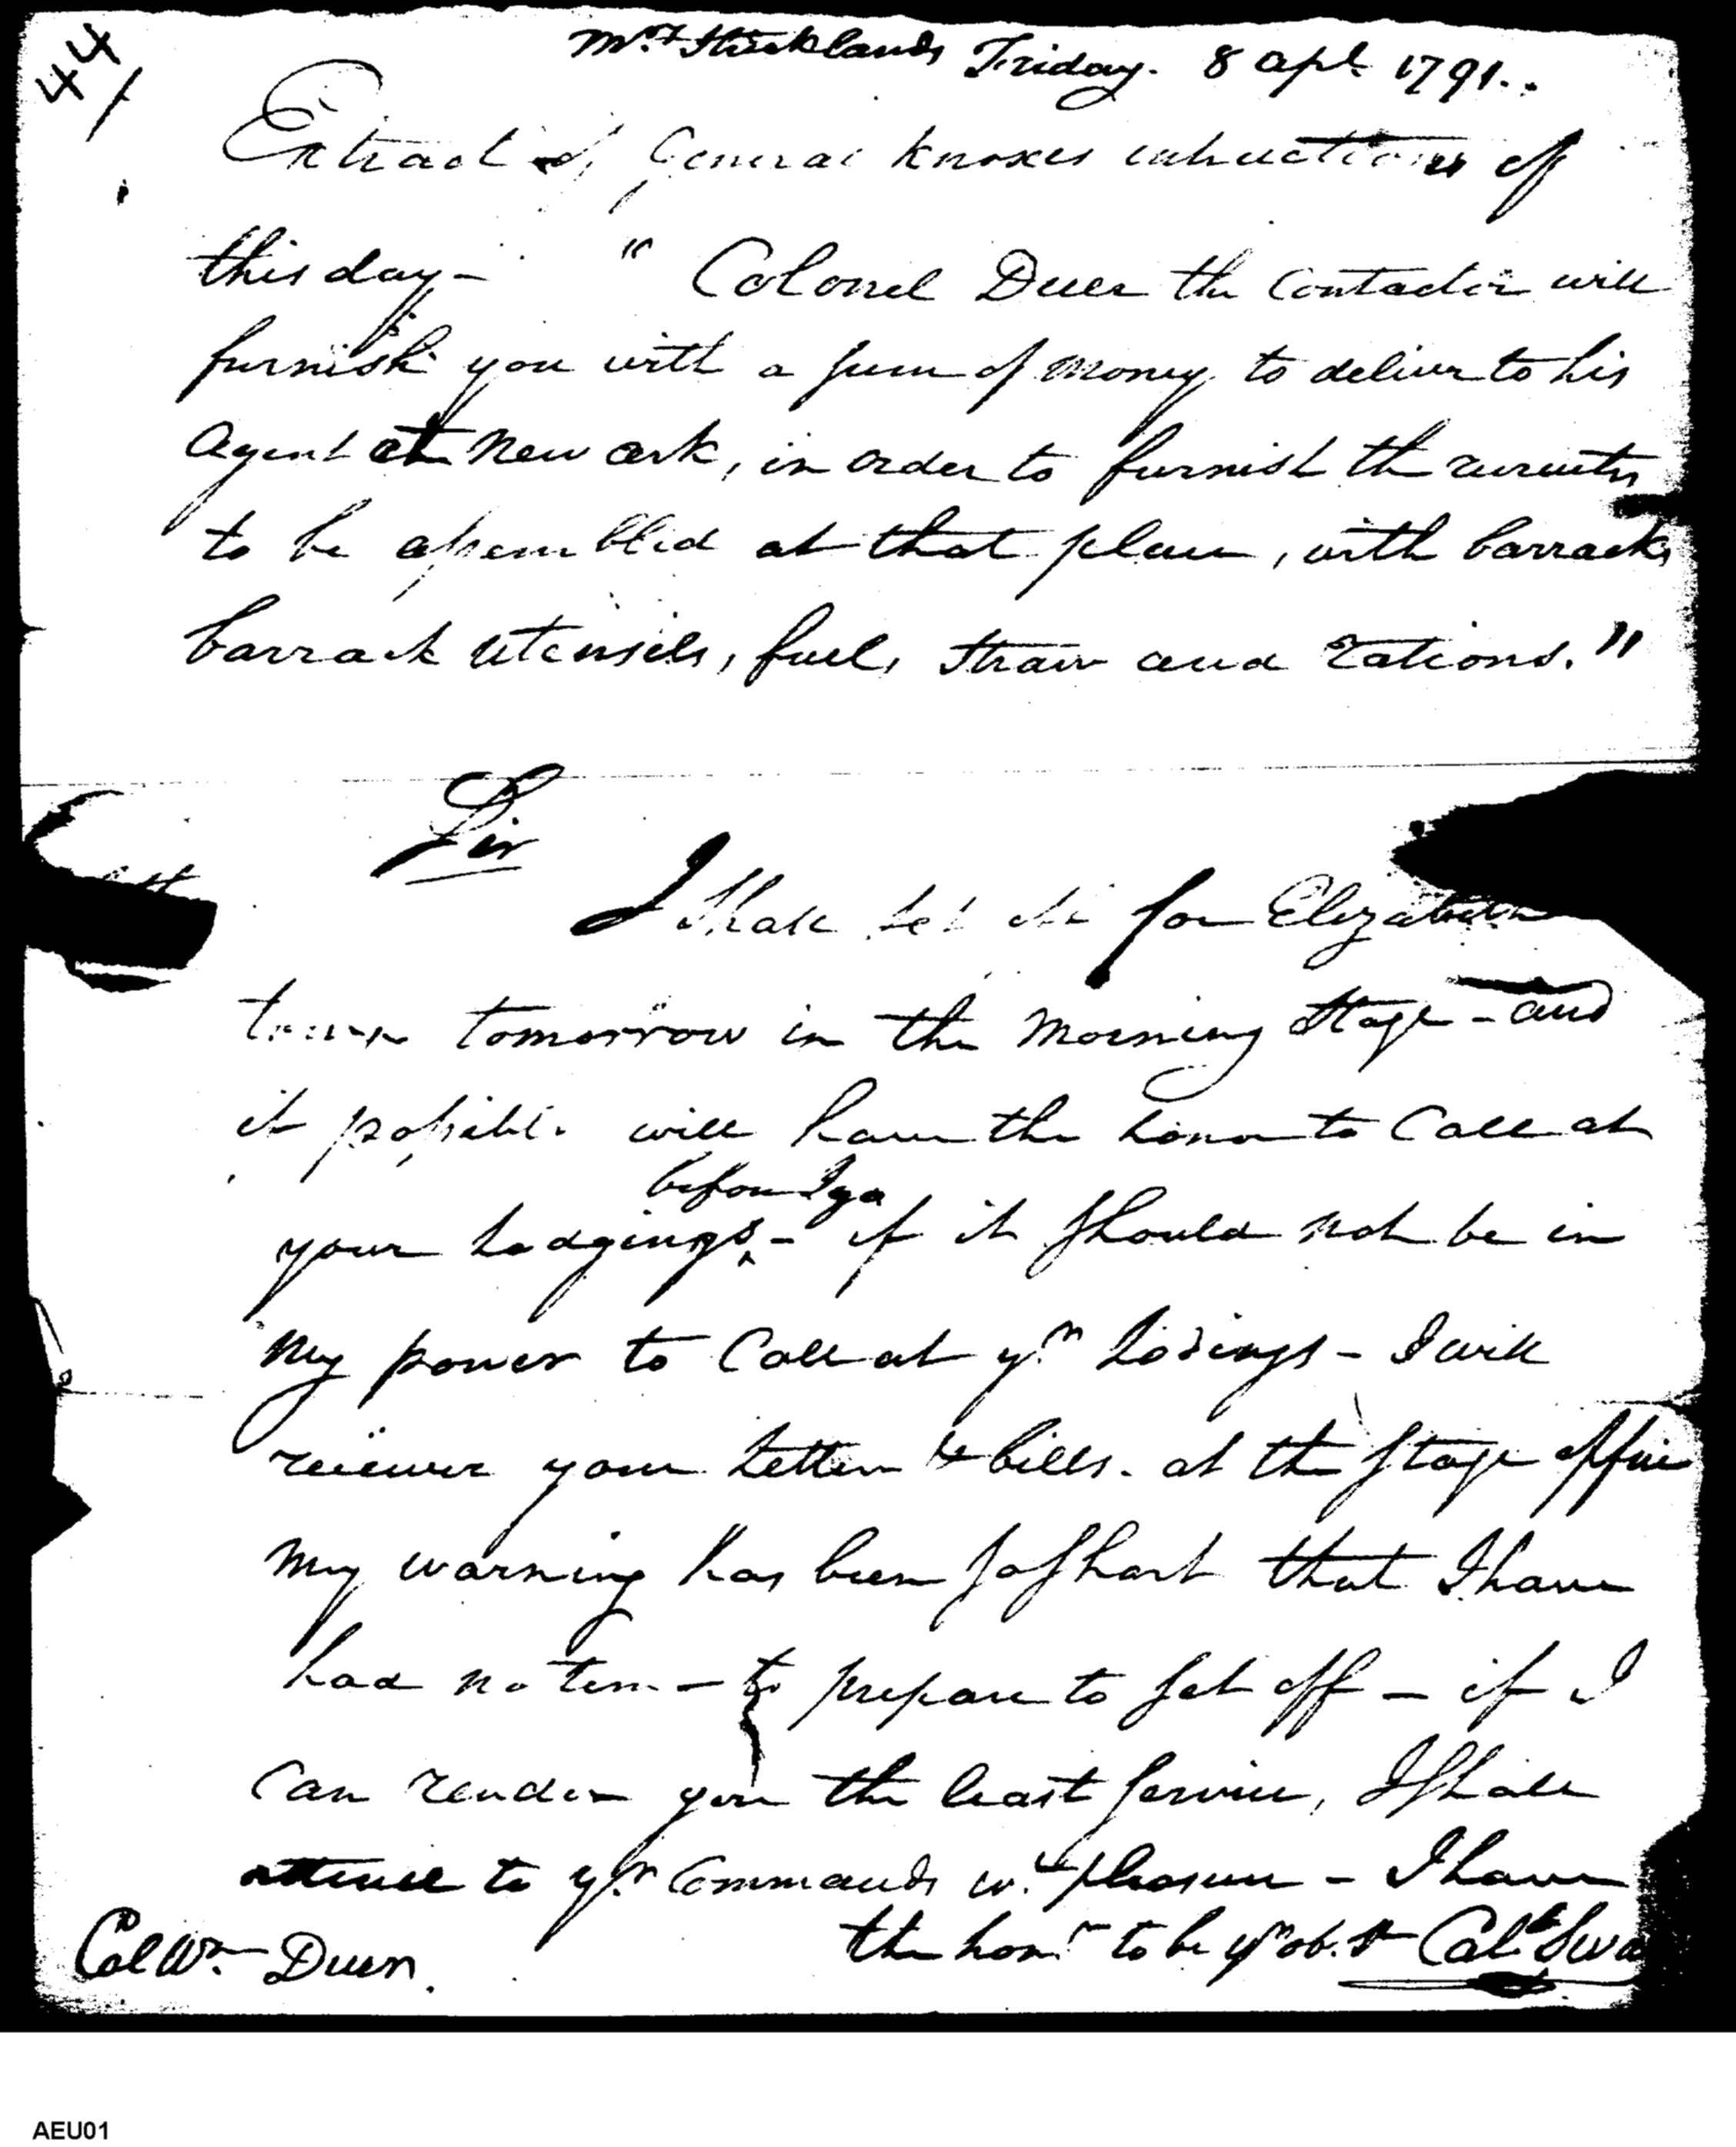 44/
Mrs. Stricklands Friday. 8 apl. 1791..
Extract of General Knoxes instructions of
this day - " Colonel Duer the Contractor will
furnish you with a sum of money to deliver to his
agent at New ark, in order to furnish the recruits
to be assembled at that place, with barracks
barrack utensils, fuel, straw and rations."
Sir
I shall set out for Elizabeth
town tomorrow in the Morning Stage - and
if possible will have the honor to Call at
before I go
your Lodgings - if it should not be in
My power to Call at yr. Lodings - I will
receive your Letter & bills. at the Stage office
My warning has been so short that I have
had no time - to prepare to set off - if I
Can render you the least service, I shall
attend to yr. Commands wt. pleasure - I have
the honr. to be yr ob. St Calb Swa
Col Wm. Duer.
AEU01